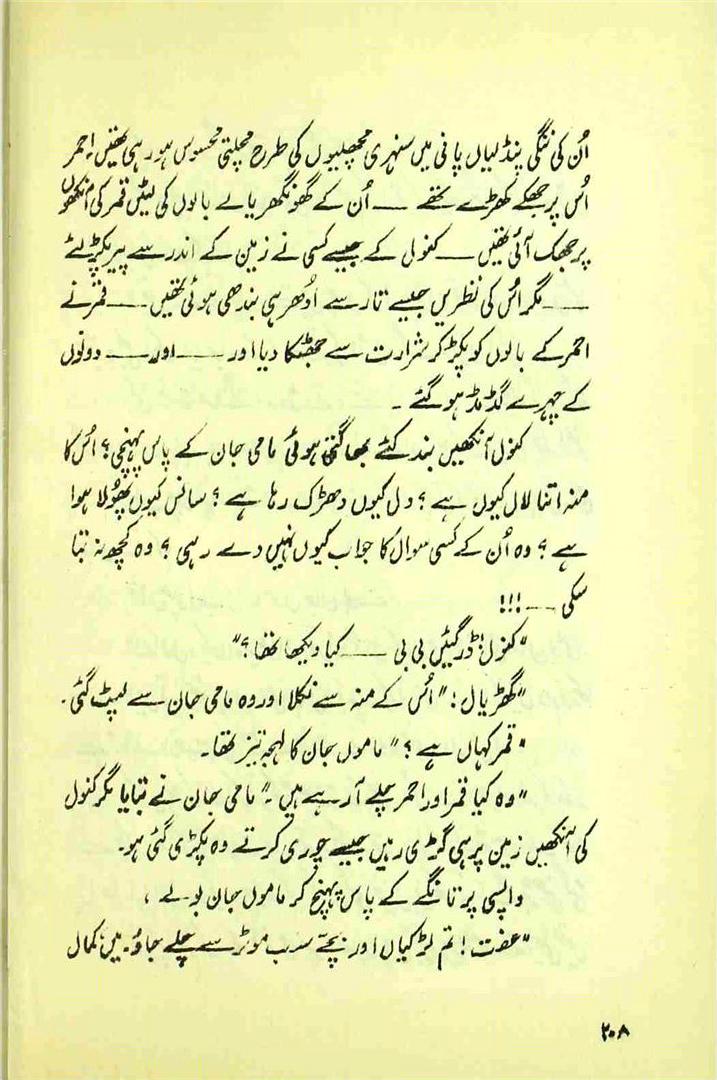 اُن کی ننگی پنڈلیاں پانی میں سنہری مچھلیوں کی طرح مچلتی محسوس ہو رہی تھیں احمر
اُس پر جھکے کھڑے تھے ـــ اُن کے گھونگھریالے بالوں کی لٹیں قمر کی آنکھوں
پر جھک آئی تھیں ـــ کنول کے جیسے کسی نے زمین کے اندر سے پیر پکڑ لئے
ـــ مگر اُس کی نظریں جیسے تار سے اُدھر ہی بندھی ہوئی تھیں ـــ قمر نے
احمر کے بالوں کو پکڑ کر شرارت سے جھٹکا دیا اور ـــ اور ـــ دونوں
کے چہرے گڈمڈ ہو گئے ۔
کنول آنکھیں بند کئے بھاگتی ہوئی مامی جان کے پاس پہنچی؟ اُس کا
منہ اتنا لال کیوں ہے ؟ دل کیوں دھڑک رہا ہے ؟ سانس کیوں پھُولا ہوا
ہے ؟ وہ اُن کے کسی سوال کا جواب کیوں نہیں دے رہی ؟ وہ کچھ نہ بتا
سکی ـــ !!!
"کنول! ڈر گئیں بی بی ـــ کیا دیکھا تھا ؟"
"گھڑیال !" اُس کے منہ سے نکلا اور وہ مامی جان سے لپٹ گئی۔
"قمر کہاں ہے ؟" ماموں جان کا لہجہ تیز تھا۔
"وہ کیا قمر اور احمر چلے آ رہے ہیں ۔" مامی جان نے بتایا مگر کنول
کی آنکھیں زمین پر ہی گڑی رہیں جیسے چوری کرتے وہ پکڑی گئی ہو۔
واپسی پر تانگے کے پاس پہنچ کر ماموں جان بولے ،
"عفت ! تم لڑکیاں اور بچے سب موٹر سے چلے جاؤ۔ میں، کمال
۲۰۸